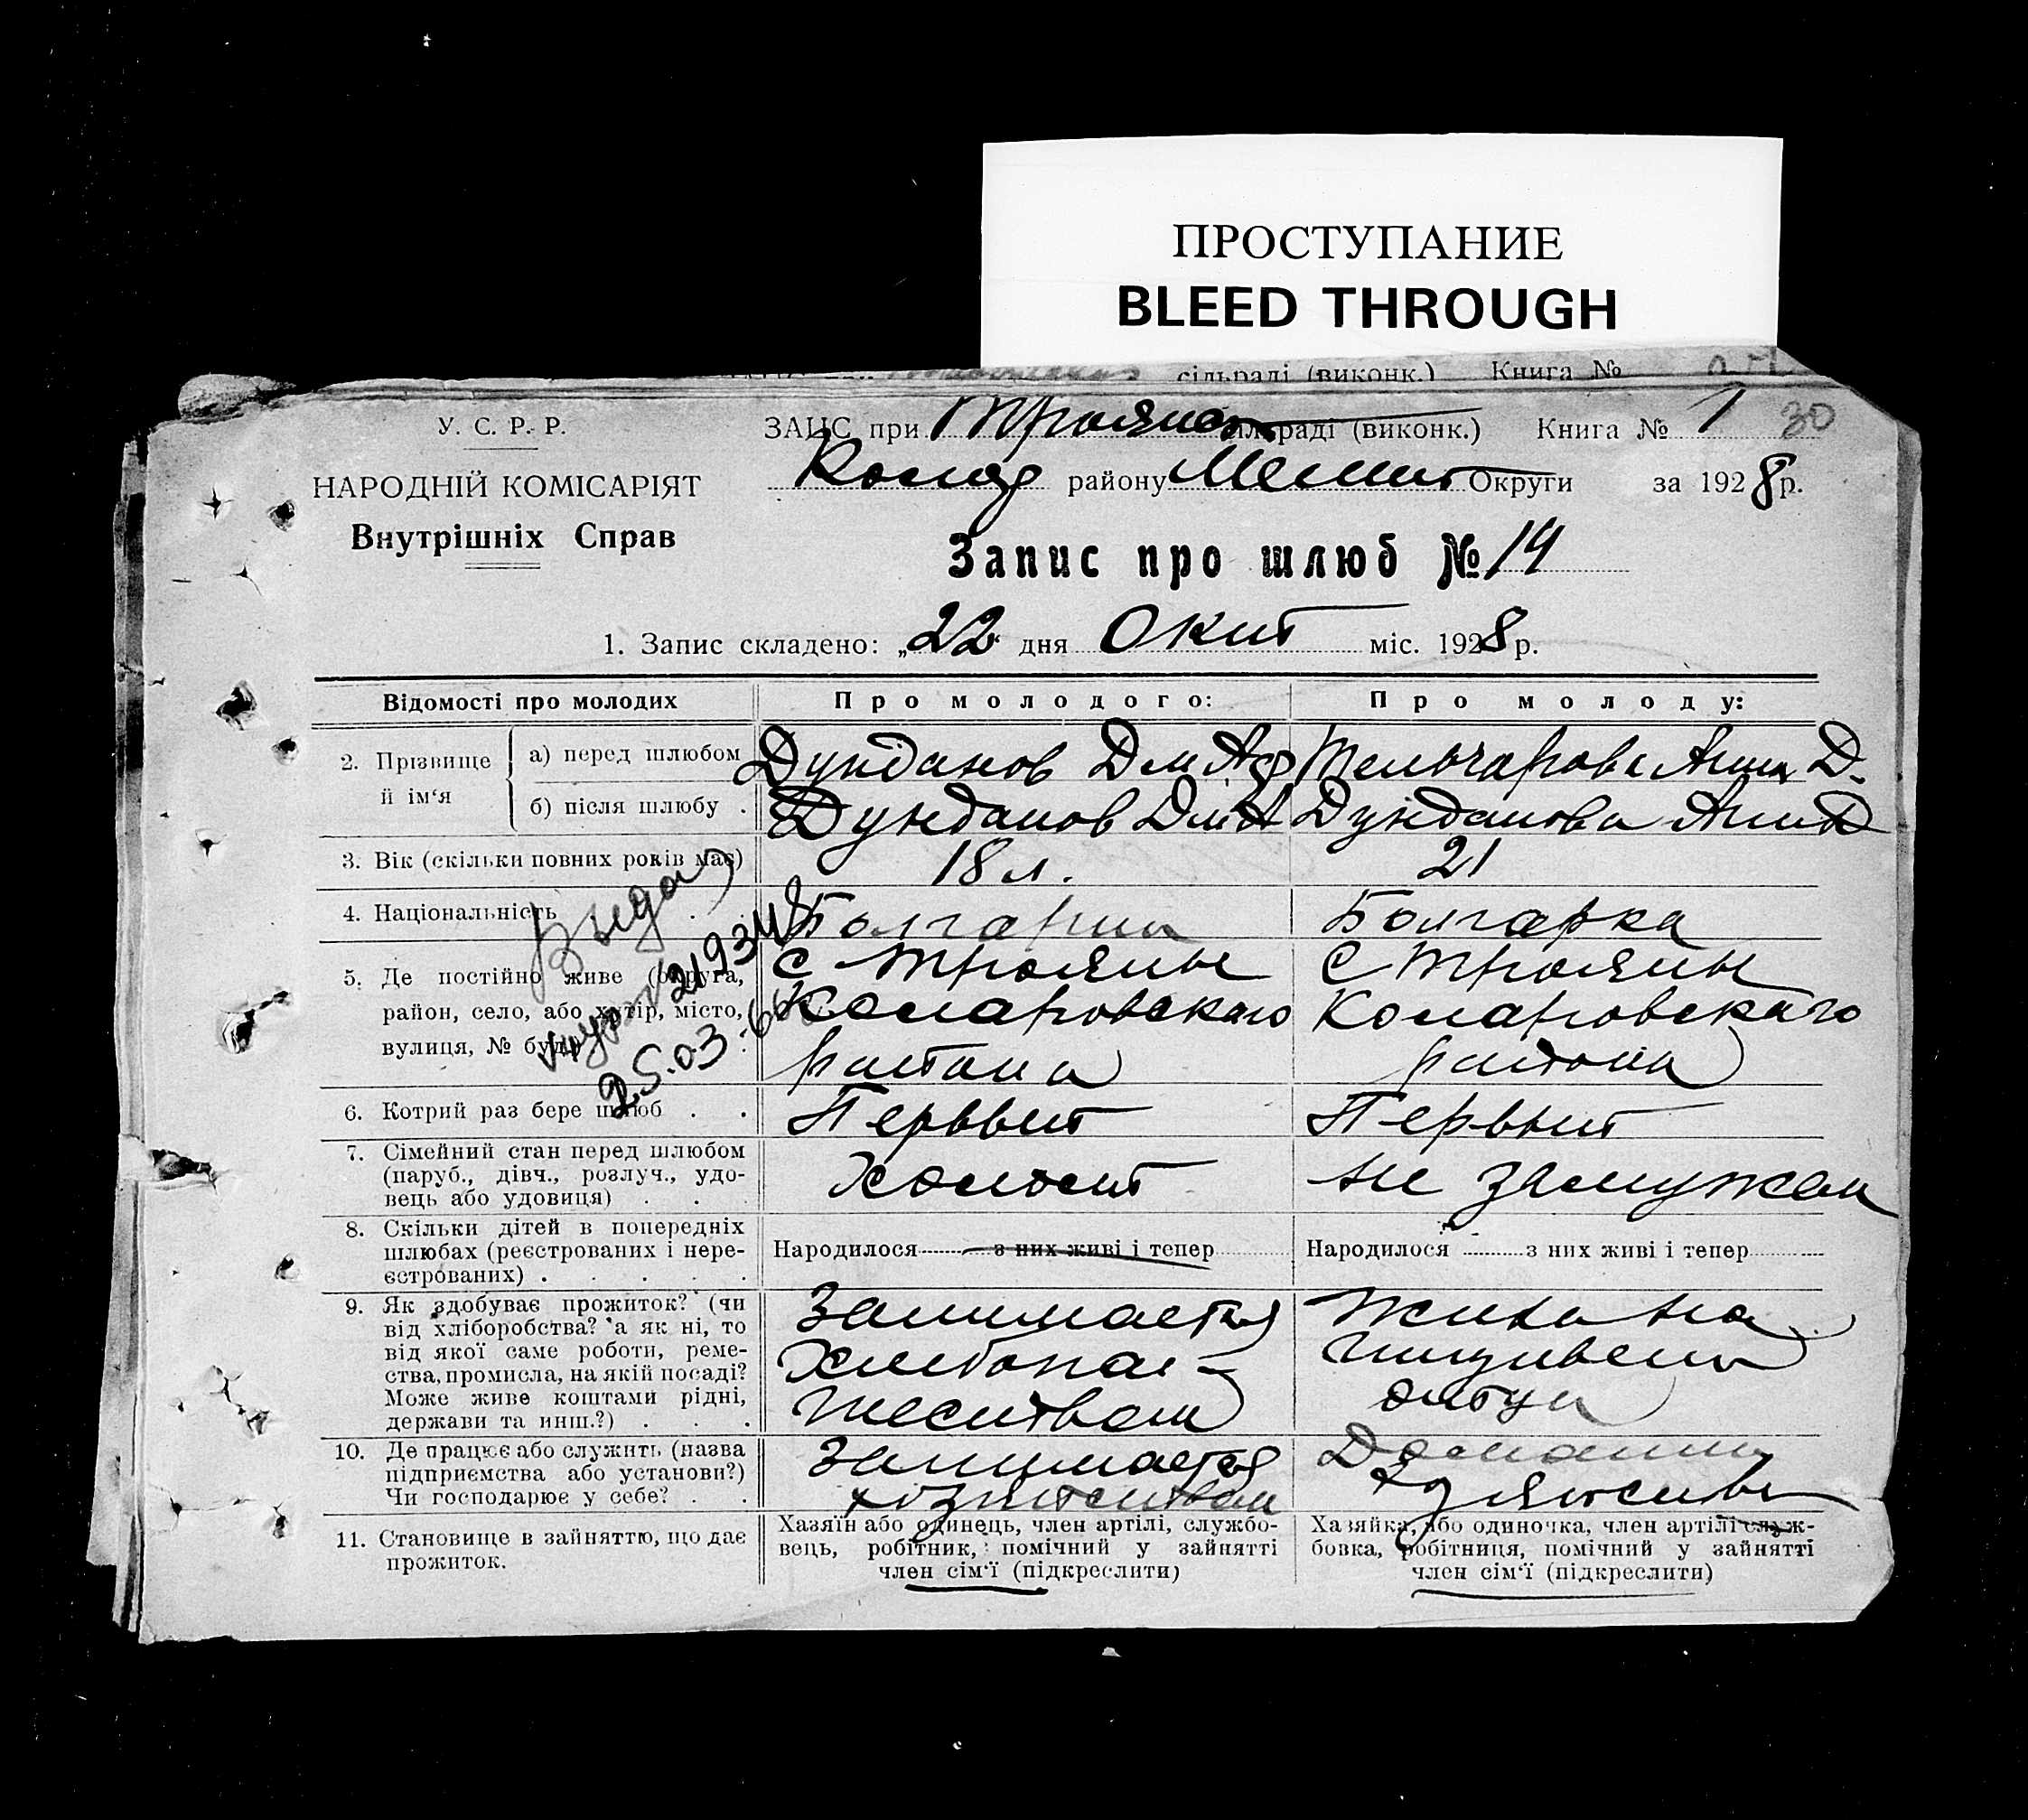 ПРОСТУПАНИЕ
BLEED THROUGH
сільраді (виконк.) Книга №
У. С. Р. Р.
ЗАЦС при Троянс сільраді (виконк.) Книга № 1 30
НАРОДНІЙ КОМІСАРІЯТ
району Мелит Округи за 1928 р.
Внутрішніх Справ
Запис про шлюб № 14
1. Запис складено: „22 дня Окт міс. 1928 р.
Відомості про молодих
Про молодого:
Про молоду:
2. Прізвище й ім‘я
а) перед шлюбом
Дунданов Дм Аф
Тельчарова Анна Д.
б) після шлюбу .
Дунданов Дм А
Дунданова Анна Д
3. Вік (скільки повних років має)
18 л.
21
4. Національність
Болгарин
Болгарка
5. Де постійно живе (округа,
район, село, або хутір, місто,
вулиця, № буд
с Трояны
Комаровского
района
С Трояны
Комаровского
района
Выдан
219348
25.03.66
6. Котрий раз бере шлюб . .
Первый
Первый
7. Сімейний стан перед шлюбом
(паруб., дівч., розлуч., удо-
вець або удовиця) . . .
Холост
не замужем
8. Скільки дітей в попередніх
шлюбах (реєстрованих і нере-
єстрованих) . . . . .
Народилося з них живі і тепер
Народилося з них живі і тепер
9. Як здобуває прожиток? (чи
від хліборобства? а як ні, то
від якої саме роботи, реме-
ства, промисла, на якій посаді?
Може живе коштами рідні,
держави та инш.?) . . .
Занимается
хлебопа-
шеством
Жила на
иждивении
отца
10. Де працює або служить (назва
підприємства або установи?)
Чи господарює у себе? . .
Занимается
хозяйством
Домашн
11. Становище в зайняттю, що дає
прожиток.
Хазяїн або одинець, член артілі, службо-
вець, робітник, помічний у зайнятті
член сім‘ї (підкреслити)
Хазяйка, або одиночка, член артілі служ-
бовка, робітниця, помічний у зайнятті
член сім‘ї (підкреслити)